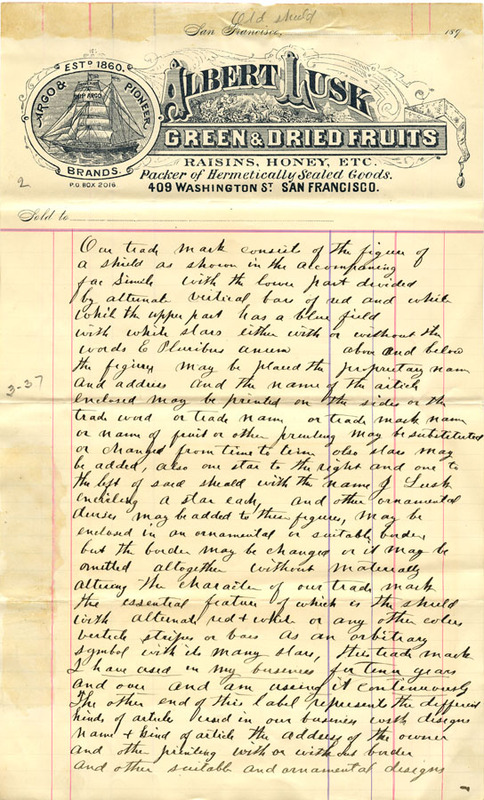 Old shield
San Francisco, 189
ESTD 1860.
ARGO & PIONEER
SHIP ARGO
BRANDS.
P.O. BOX 2016
ALBERT LUSK
GREEN & DRIED FRUITS
RAISINS, HONEY, ETC.
Packer of Hermetically Sealed Goods.
409 WASHINGTON ST SAN FRANCISCO.
2
Sold to
Our trade mark consist of the figure of
a shield as shown in the accompaning
fac Simile with the lower part divided
by alternate virtical bars of red and while
whil the upper part has a blue field
with while stars either with or without the
words E Pluribus unum above and below
the figures may be placed the proprietary name
and address and the name of the article
enclosed may be printed on the sides or the
trade word or trade name or trade mark name
or name of fruit or other printing may be substituted
or changed from time to time also stars may
be added, also one star to the right and one to
the left of said shield with the name J Lusk
encirling a star each, and other ornamental
devises may be added to these figures, may be
enclosed in an ornamental or suitable border,
but the border may be changed or it may be
omitted altogether without materially
altering the character of our trade mark
the essential feature of which is the shield
with alternate red & while or any other colors
verticle stripes or bars as an arbitrary
symbol with its many stars, this trade mark
I have used in my business for tenn years
and over and am useing it continuously
The other end of this label represents the different
kinds of article used in our business with designs
name & kind of article the address of the owner
and other printing with or without border
and other suitable and ornamental designs
3-37